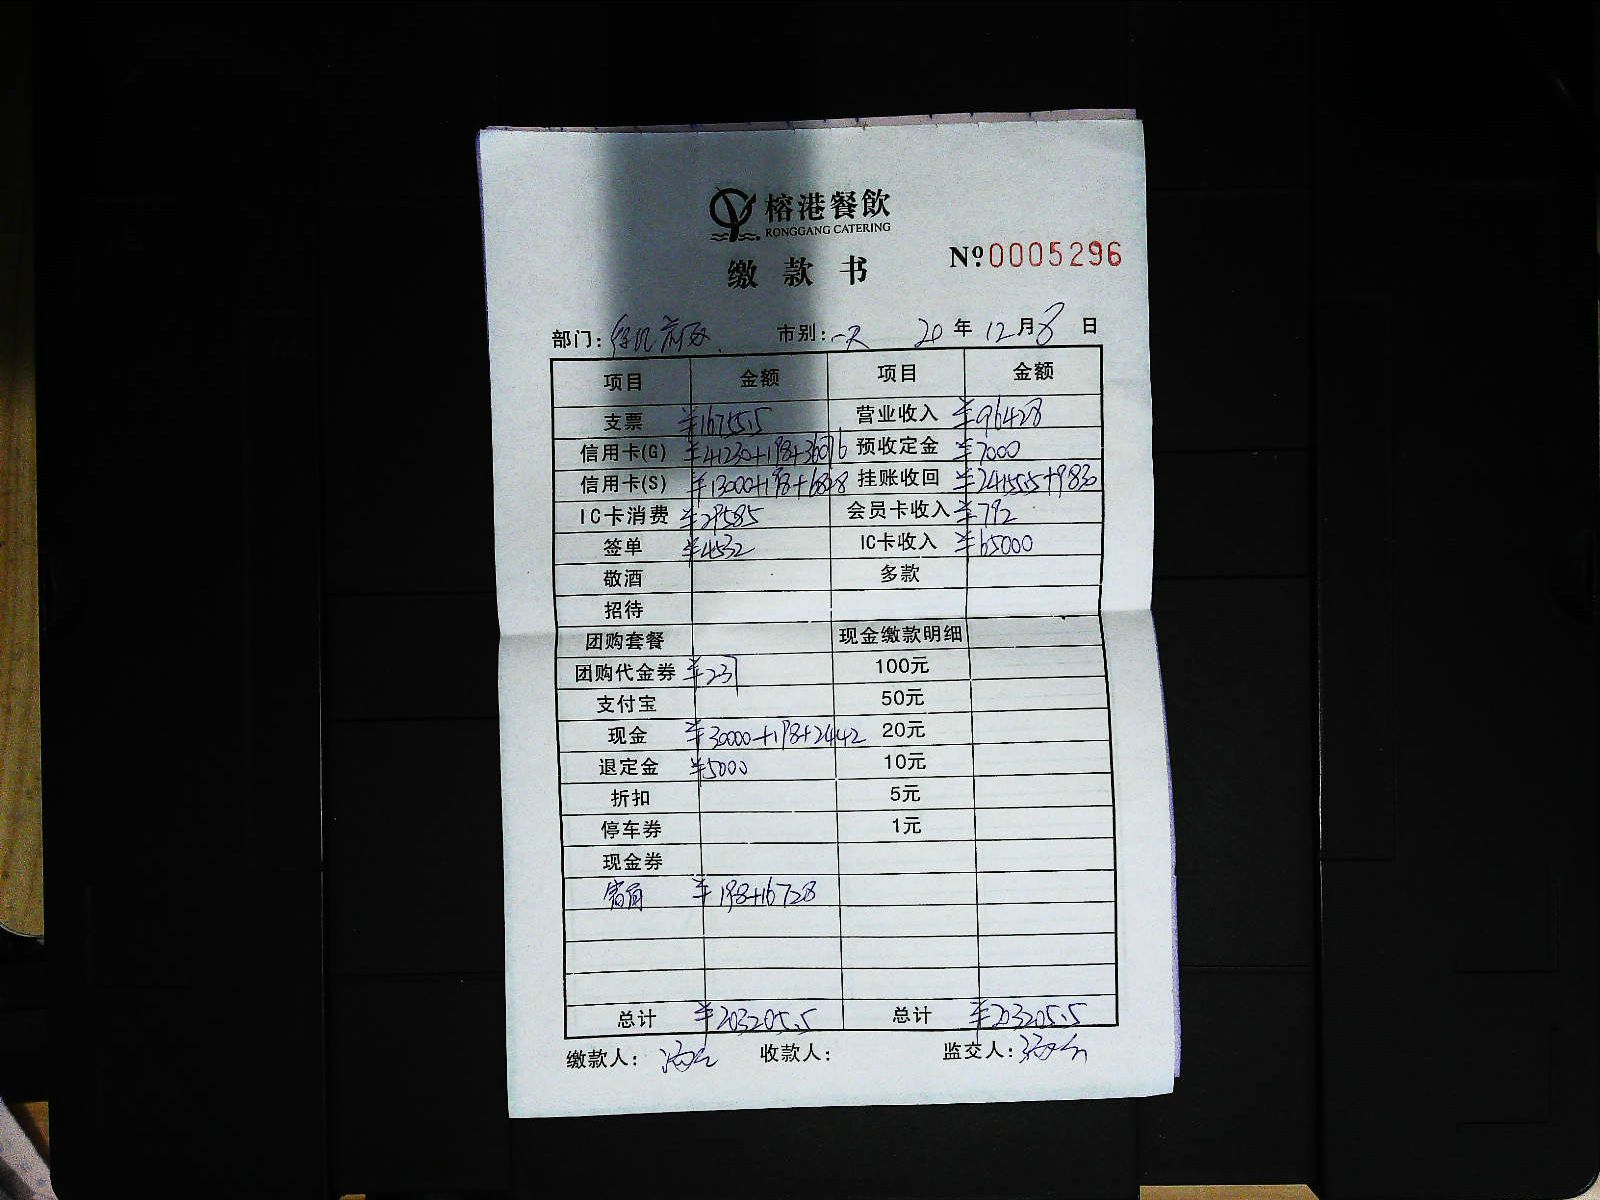 榕港餐飲
RONGGANG CATERING
缴款书
Nº0005296
部门: 市别:一天 20年12月8日
项目 金额 项目 金额
支票 ¥16755.5 营业收入 ¥96428
信用卡(G) ¥41230+198+36076 预收定金 ¥7000
信用卡(S) ¥13000+198+6828 挂账收回 ¥24155.5+9830
IC卡消费 ¥29585 会员卡收入 ¥792
签单 ¥4532 IC卡收入 ¥65000
敬酒 多款
招待
团购套餐 现金缴款明细
团购代金券 ¥237 100元
支付宝 50元
现金 ¥30000+198+2442 20元
退定金 ¥5000 10元
折扣 5元
停车券 1元
现金券
¥198+16728
总计 ¥203205.5 总计 ¥203205.5
缴款人: 收款人: 监交人: